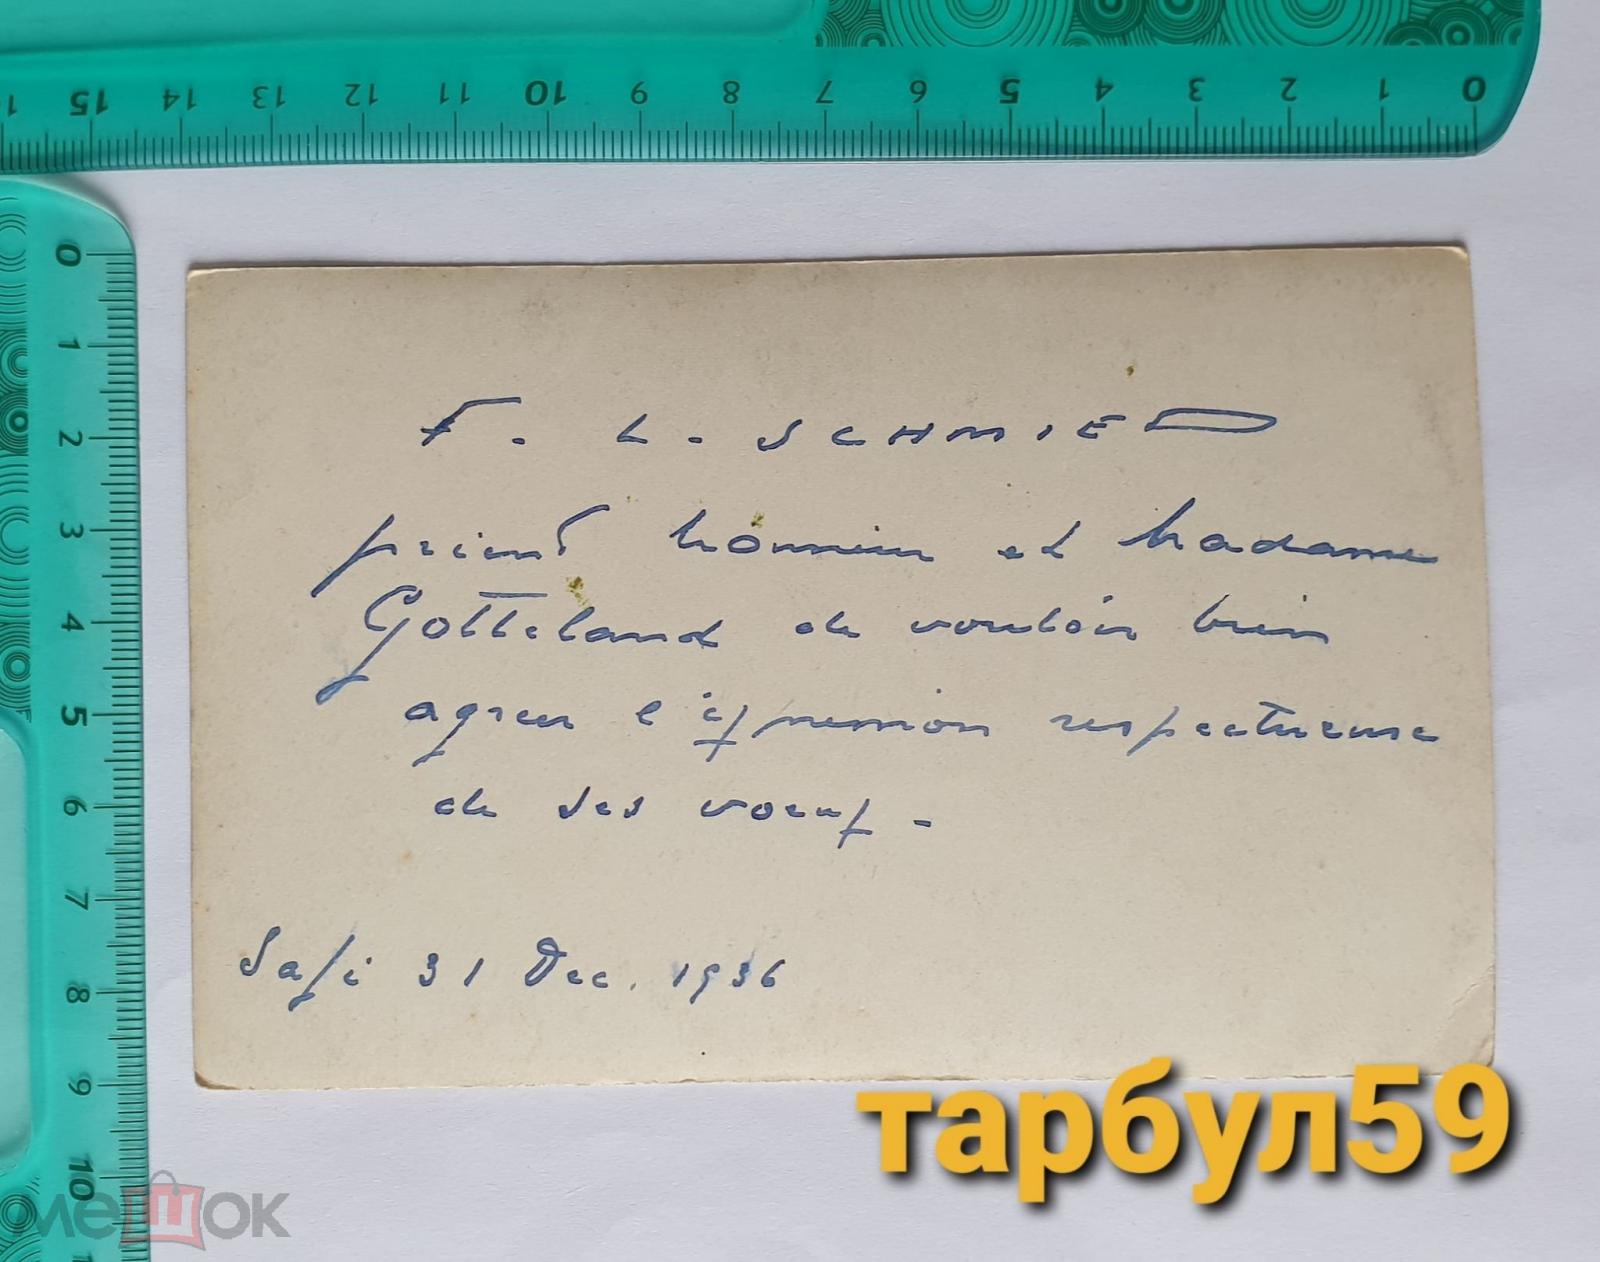 0 1 2 3 4 5 6 7 8 9 10 11 12 13 14 15
0 1 2 3 4 5 6 7 8 9 10
F. L. SCHMIED
prient Monsieur et Madame
Gotteland de vouloir bien
agreer l'expression respectueuse
de ses voeux -
Safi 31 Dec. 1936
тарбул59
мешок